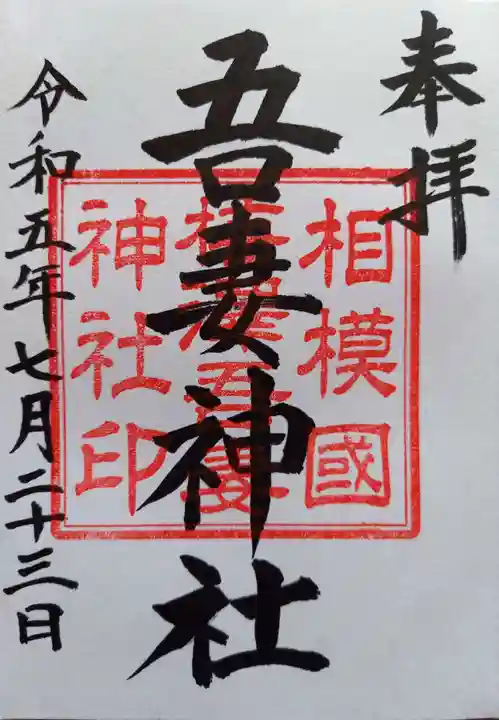 奉拝
吾妻神社
令和五年七月二十三日
相模國
吾妻
神社印